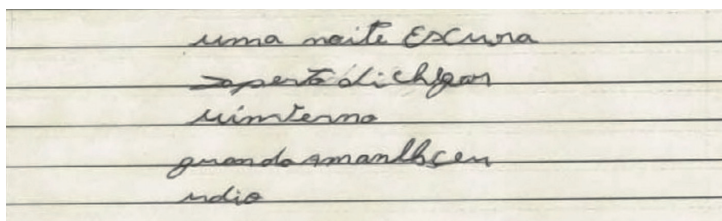 uma noite Escura
aperta di chegar
uinverno
quando amanheceu
udia